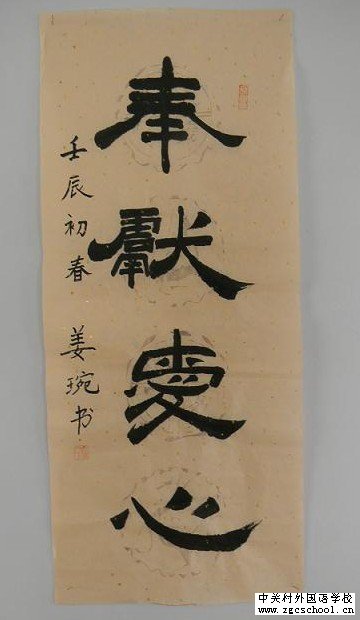 奉獻愛心
壬辰初春
姜琬书
中关村外国语学校
www.zgcschool.com.cn